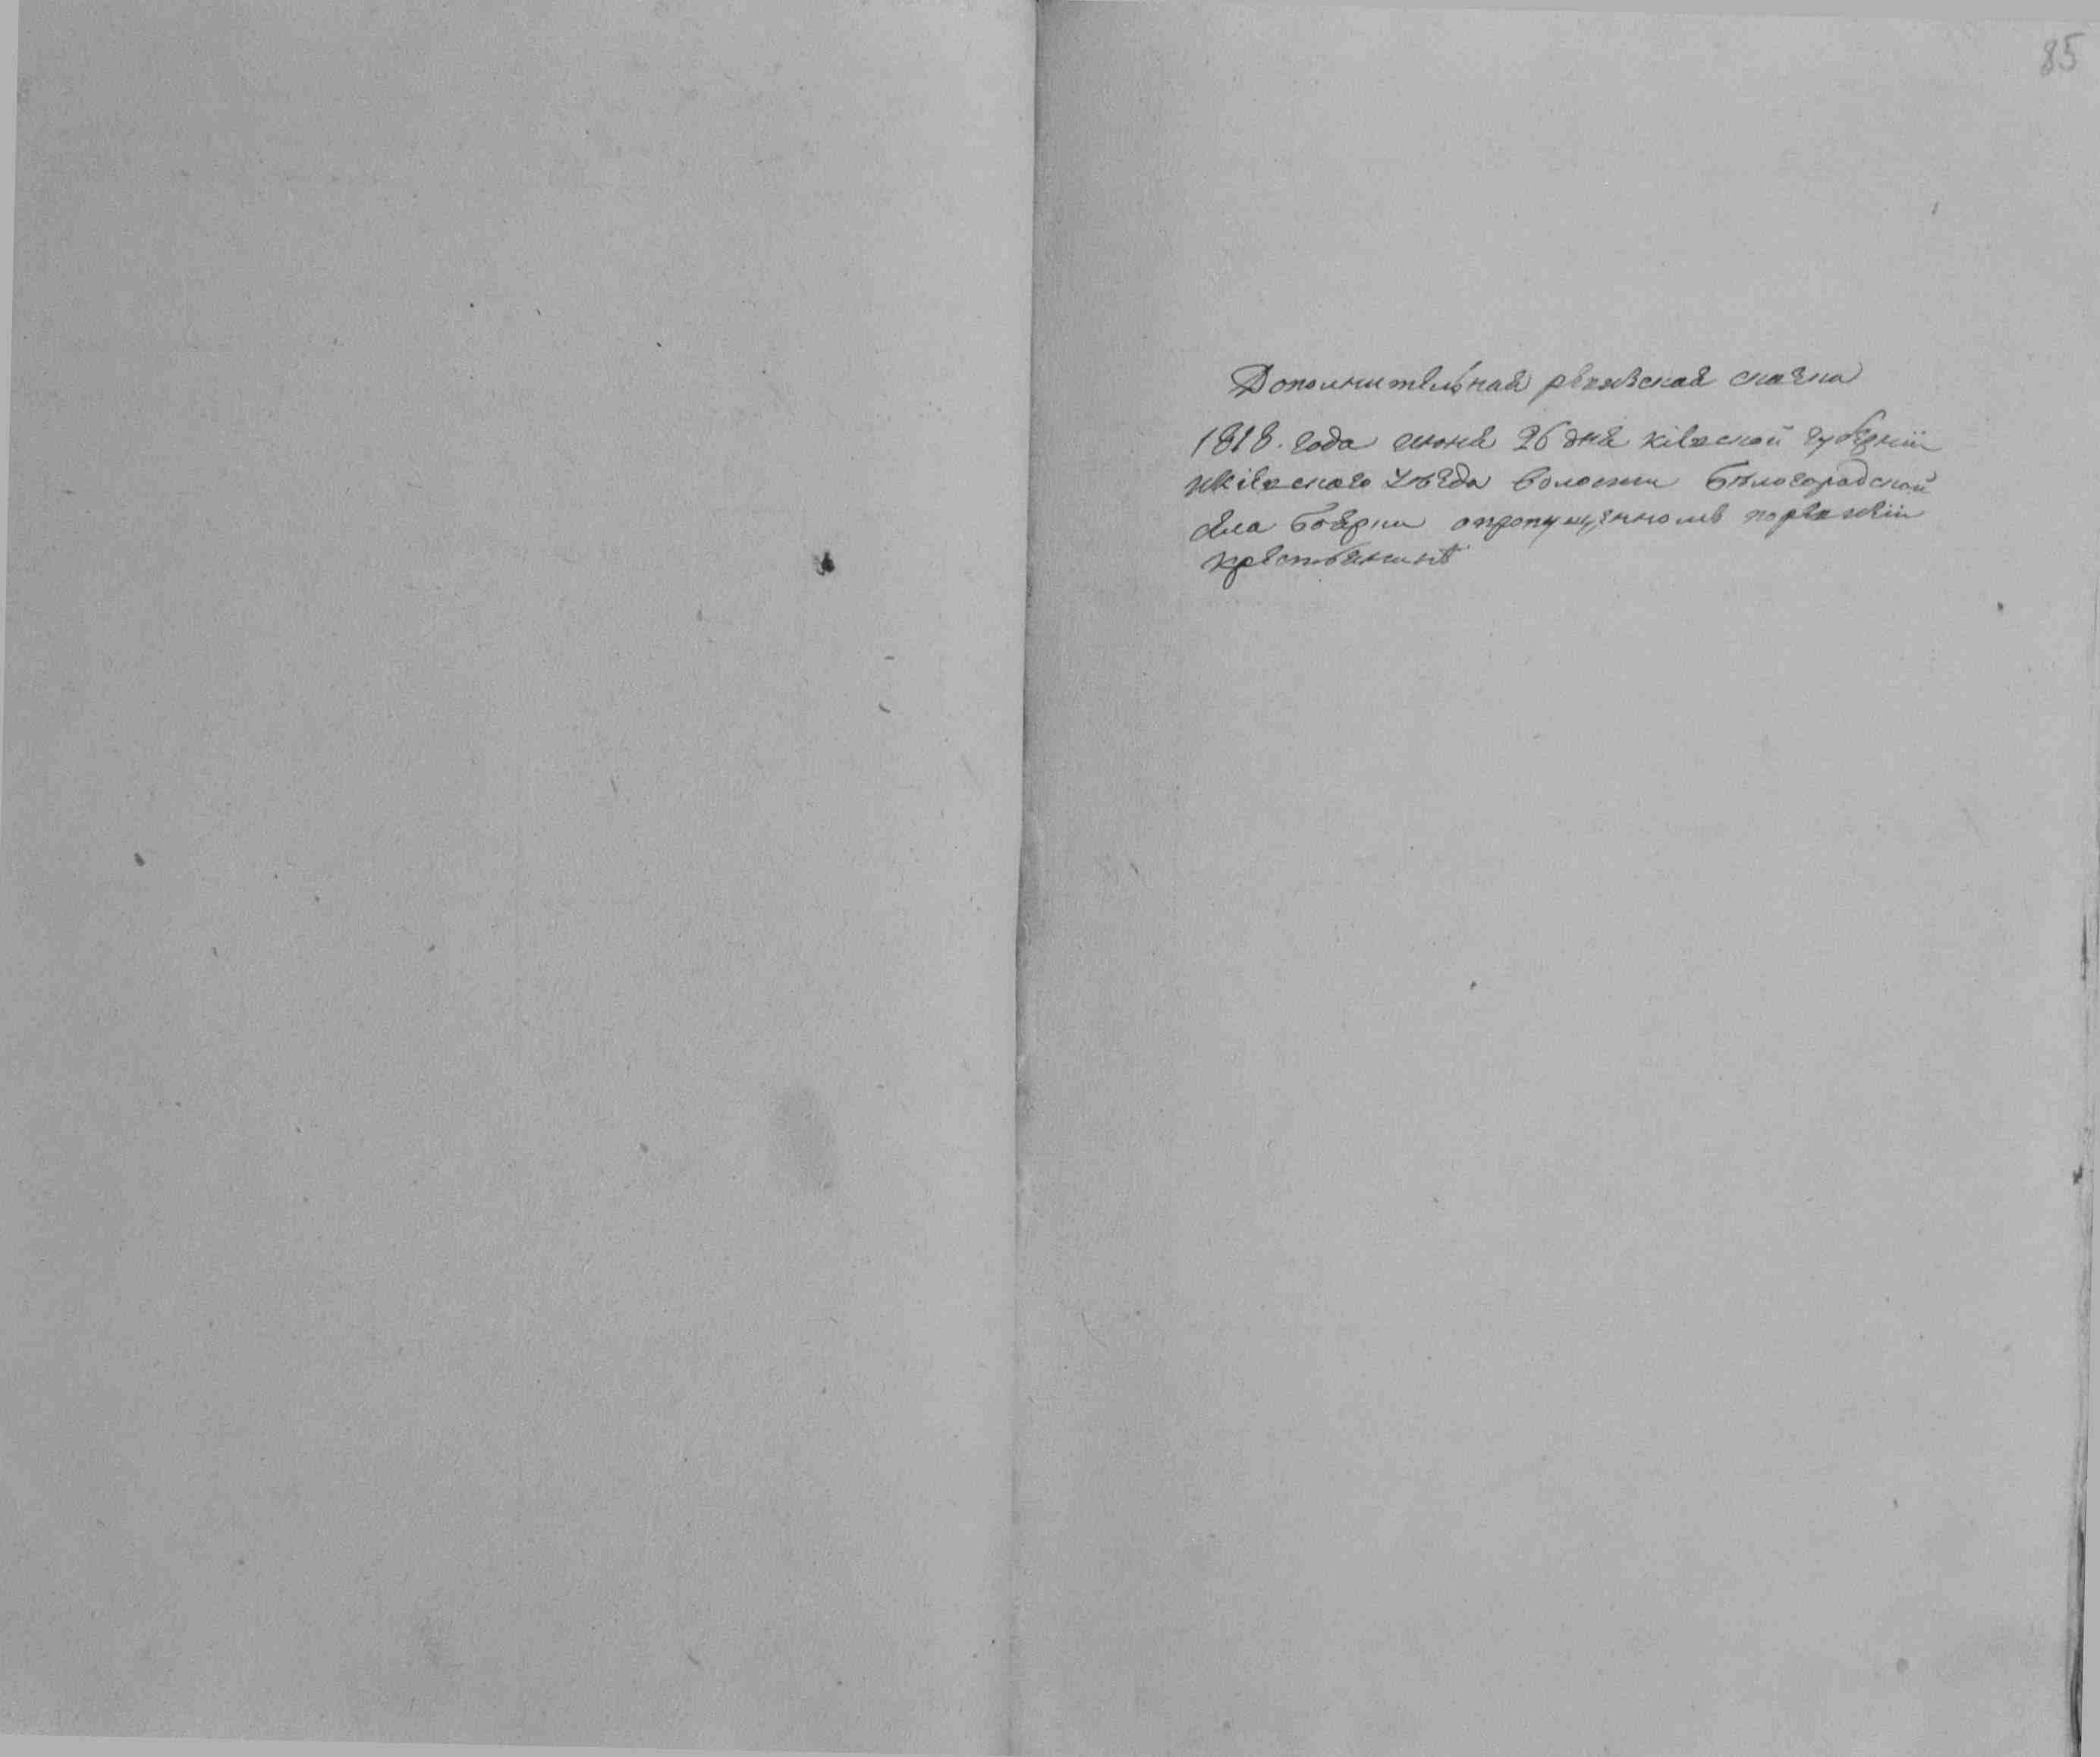 85
Дополнительная ревизская сказка
1818. года июня 26 дня кіевской губерніи
икіевского уѣзда волости бѣлогородской
села боярки опропущенномъ поревизіи
крестьянинѣ